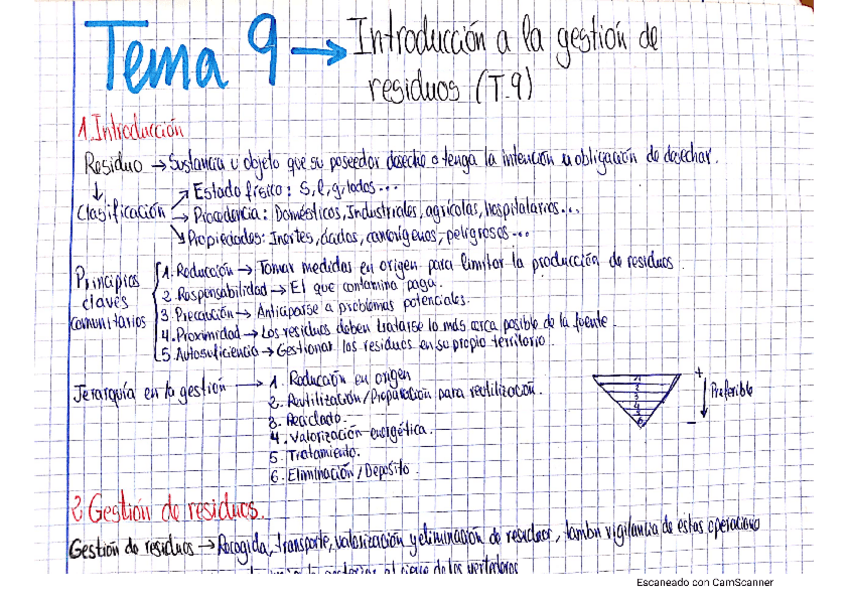 Tema 9 → Introducción a la gestión de
residuos (T.9)
1. Introducción
Residuo → Sustancia u objeto que su poseedor deseche o tenga la intención u obligación de desechar.
↓
Clasificación
→ Estado físico: S, l, g, lodos...
→ Procedencia: Domésticos, Industriales, agrícolas, hospitalarios...
→ Propiedades: Inertes, ácidos, cancerígenos, peligrosos...
Principios
claves
comunitarios
1. Reducción → Tomar medidas en origen para limitar la producción de residuos.
2. Responsabilidad → El que contamina paga.
3. Precaución → Anticiparse a problemas potenciales.
4. Proximidad → Los residuos deben tratarse lo más cerca posible de la fuente.
5. Autosuficiencia → Gestionar los residuos en su propio territorio.
Jerarquía en la gestión → 1. Reducción en origen
2. Reutilización/Preparación para reutilización.
3. Reciclado.
4. Valorización energética.
5. Tratamiento.
6. Eliminación/Depósito.
1
2
3
4
5
6
+
↓ Preferible
-
2. Gestión de residuos.
Gestión de residuos → Recogida, transporte, valorización y eliminación de residuos, también vigilancia de estas operaciones
al cierre de los vertederos
Escaneado con CamScanner